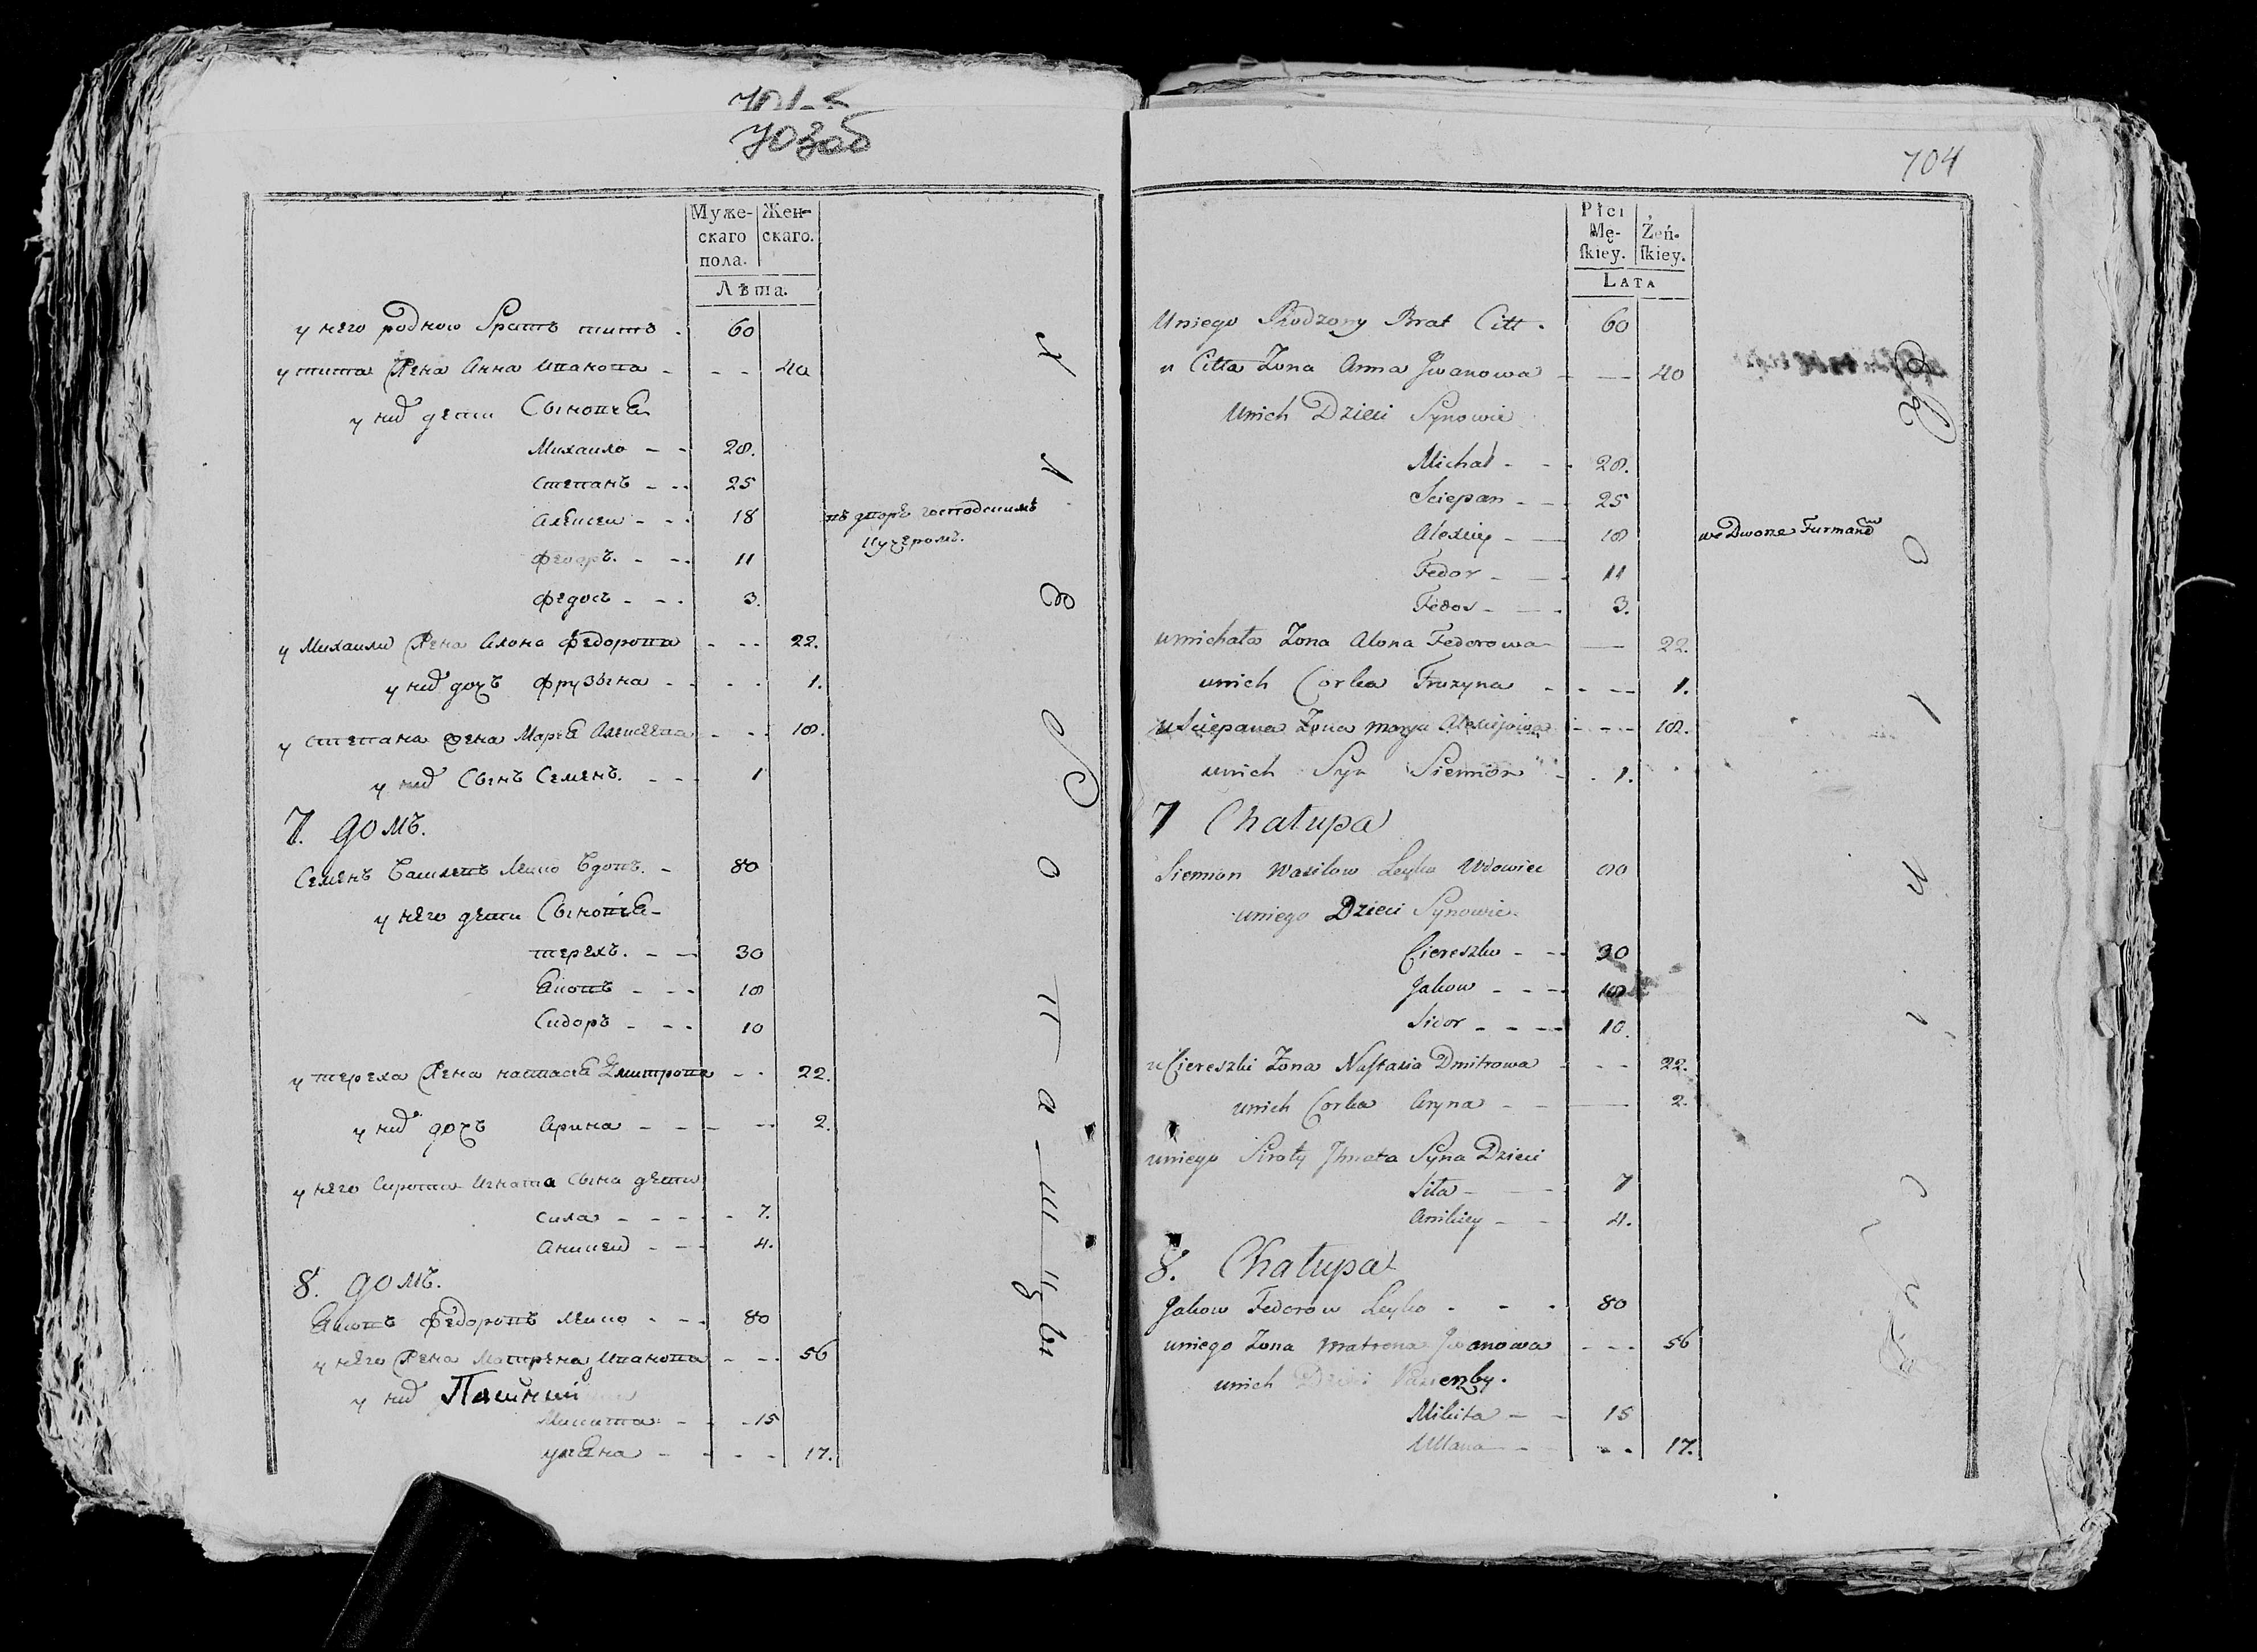 703об
Муже-
скаго
пола.
Жен-
скаго.
Лѣта.
у него родной братъ титъ - 60
у тита жена Анна Иванова - - - 40
у них дети Сыновья
Михаило - - 28.
степанъ - - 25
Алексеи - - 18
въ дворе господскимъ
кучеромъ.
Феодръ. - - 11
Федосъ - - 3.
у Михаилы жена Алена Федорова - - - 22.
у них дочь Фрузына - - - - 1.
у степана жена Марья Алексеева - - - 18.
у них Сынъ Семенъ. - - - 1
7. домъ.
Семенъ Василевъ Лейко Вдовъ. - 80
у него дети Сыновья
терехъ. - - 30
Яковъ - - - 18
Сидоръ - - - 10
у тереха жена настасья Дмитрова - - 22.
у них дочь Арина - - - - - 2.
у него Сироты Игната Сына дети
сила - - - - - 7.
Аникей - - - 4.
8. домъ.
Яковъ Федоровъ Лейко - - - 80
у него жена Матрена Иванова - - - 56
у них
Микита - - - 15
ульяна - - - - - 17.
704
Płci
Mę-
ſkiey.
Żeń-
ſkiey.
LATA
Uniego Rodzony Brat Citt - 60
u Citta Zona Anna Jwanowa - - 40
Unich Dzieci Synowie
Michał - - - 28.
Sciepan - - 25
Alexiey - - 18
we Dworze Furmanem
Fedor - - - 11
Fedos - - - 3.
u michała Zona Alona Fedorowa - 22.
unich Corka Fruzyna - - - - 1.
u Sciepana Zona marya Alexiejowa - - - 18.
unich Syn Siemion - - 1.
7 Chałupa
Siemion Wasilow Leyko Wdowiec 80
uniego Dzieci Synowie
Ciereszko - - 30
Jakow - - - - 18
Sidor - - - - 10.
u Ciereszki Zona Naſtazia Dmitrowa - - - 22.
unich Corka Aryna - - - 2.
uniego Siroty Jhnata Syna Dzieci
Siła - - - 7
Anikiey - - 4.
8. Chałupa
Jakow Fedorow Leyko - - - 80
uniego Zona matrona Jwanowa - - - 56
unich Dzieci
Mikita - - 15
Ullana - - - - 17.